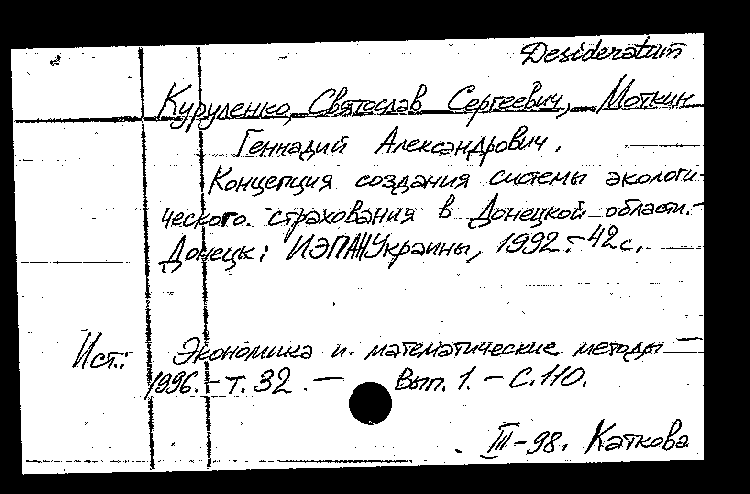 Desideratum
Куруленко, Святослав Сергеевич, Моткин
Геннадий Александрович.
Концепция создания системы экологи-
ческого страхования в Донецкой области.-
Донецк: ИЭПАНУкраины, 1992.- 42с.
Ист.: Экономика и математические методы -
1996. - Т. 32. - Вып. 1. - С. 110.
III-98. Каткова